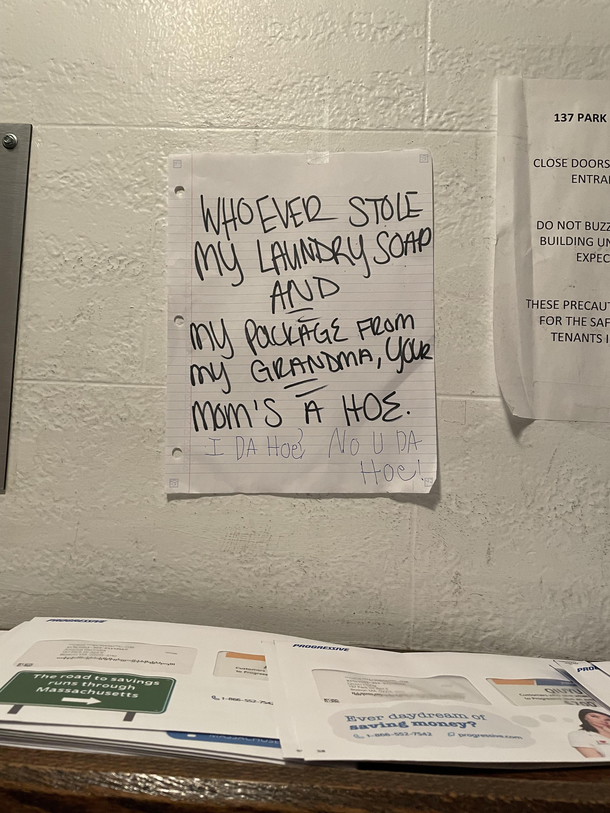 WHOEVER STOLE
MY LAUNDRY SOAP
AND
MY PACKAGE FROM
MY GRANDMA, YOUR
MOM'S A HOE.
I DA HOE? NO U DA
HOE!
137 PARK
CLOSE DOORS
ENTRA
DO NOT BUZZ
BUILDING UN
EXPEC
THESE PRECAUT
FOR THE SAF
TENANTS I
PROGRESSIVE
The road to savings
runs through
Massachusetts
Customers
to Progre
1-866-552-754
PROGRESSIVE
Ever daydream of
saving money?
1-866-552-7542 progressive.com
PRO